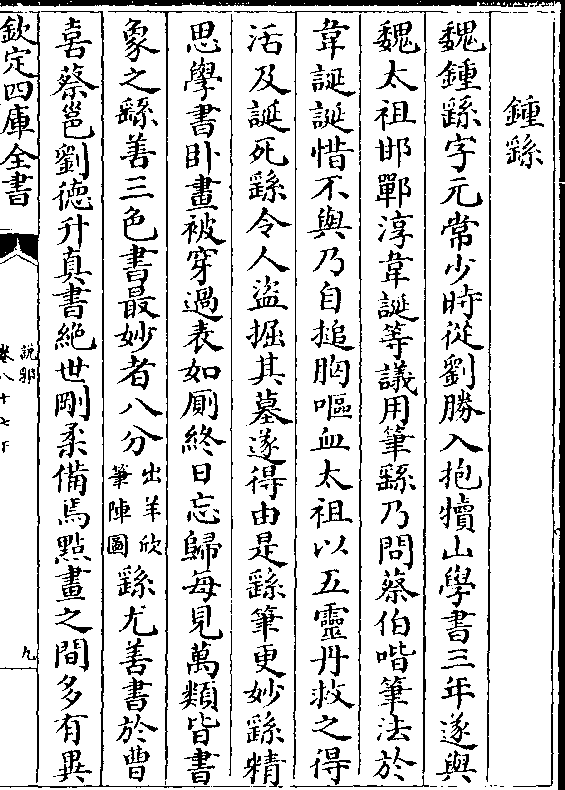 鍾繇
魏鍾繇字元常少時從劉勝入抱犢山學書三年遂與
魏太祖邯鄲淳韋誕等議用筆繇乃問蔡伯喈筆法於
韋誕誕惜不與乃自搥胸嘔血太祖以五靈丹救之得
活及誕死繇令人盜掘其墓遂得由是繇筆更妙繇精
思學書卧畫被穿過表如厠終日忘歸每見萬類皆書
象之繇善三色書最妙者八分出羊欣筆陣圖繇尤善書於曹
喜蔡邕劉德升真書絶世剛柔備焉點畫之間多有異
欽定四庫全書
説郛
卷八十七下
九